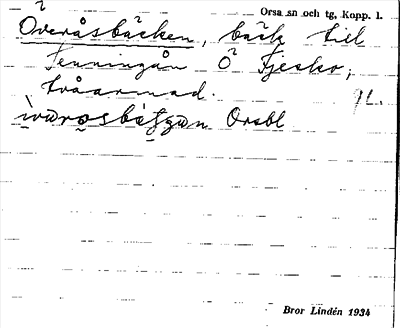 Orsa sn och tg, Kopp. l.
Överåsbäcken, bäck till
Tenningån Ö Fjesko;
tvåarmad. 9L.
Orsbl
Bror Lindén 1934